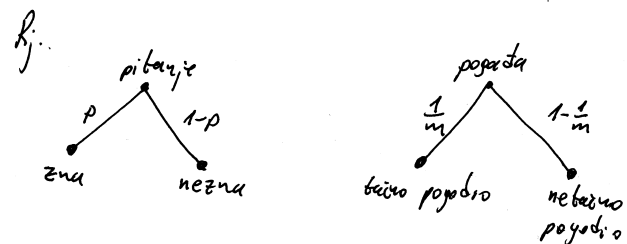 Rj..
pitanje
p
1-p
zna
nezna
pogađa
1/m
1-1/m
tačno pogodio
netačno
pogodio